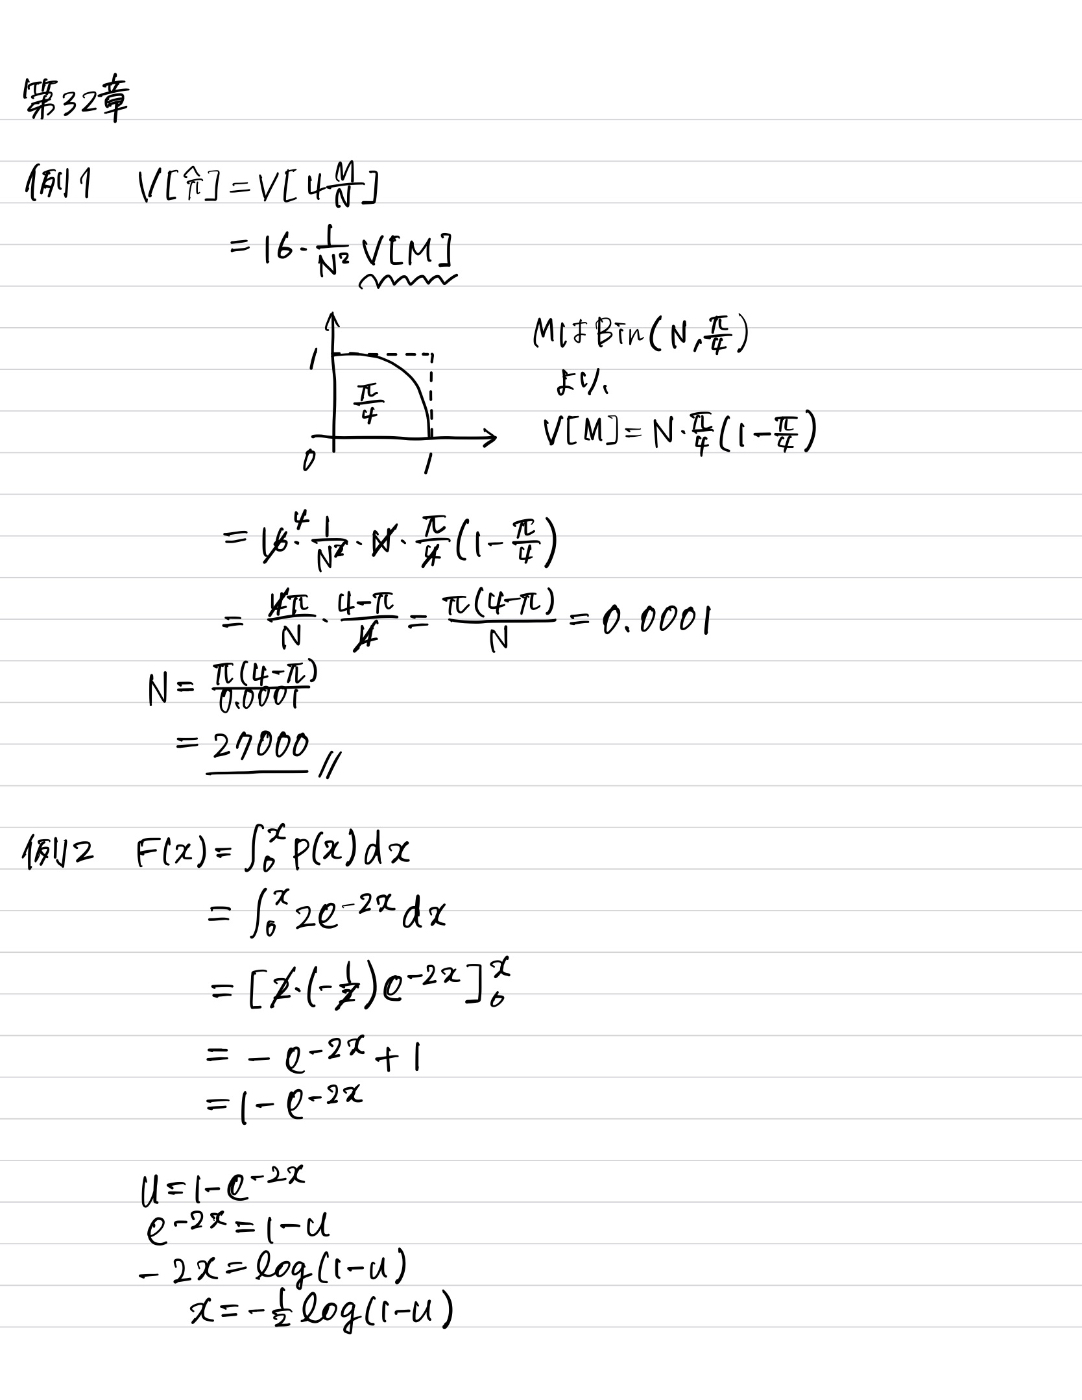 第32章
例1 V[π̂] = V[4 M/N]
= 16・1/N² V[M]
1
π/4
0 1
MはBin(N, π/4)
より、
V[M] = N・π/4(1-π/4)
= 16⁴・1/N²・N・π/4(1-π/4)
= 4π/N・4-π/4 = π(4-π)/N = 0.0001
N = π(4-π)/0.0001
= 27000 //
例2 F(x) = ∫₀ˣ P(x)dx
= ∫₀ˣ 2e⁻²ˣ dx
= [2・(-1/2)e⁻²ˣ]₀ˣ
= - e⁻²ˣ + 1
= 1 - e⁻²ˣ
u = 1 - e⁻²ˣ
e⁻²ˣ = 1 - u
- 2x = log(1-u)
x = -1/2 log(1-u)